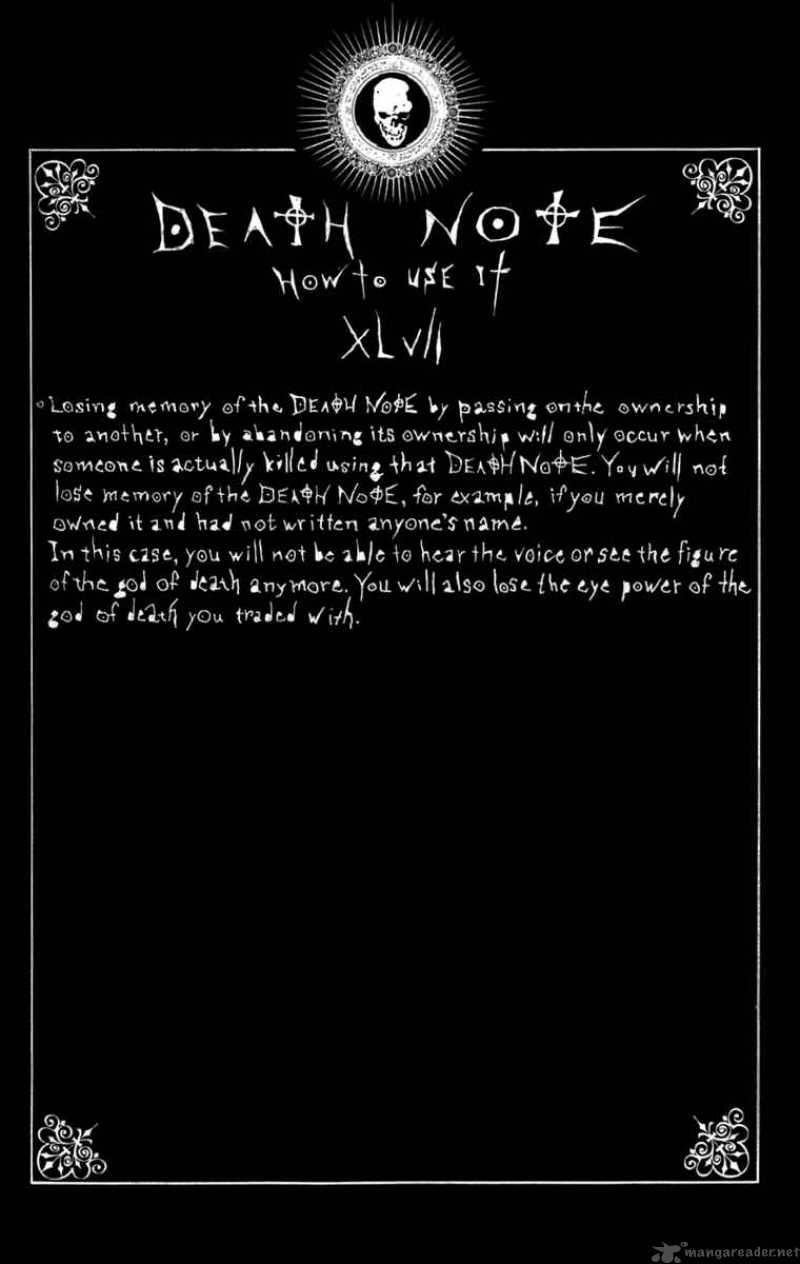 DEATH NOTE
HOW to USE It
XLVII
Losing memory of the DEATH NOTE by passing on the ownership
to another, or by abandoning its ownership will only occur when
someone is actually killed using that DEATH NOTE. You will not
lose memory of the DEATH NOTE, for example, if you merely
owned it and had not written anyone's name.
In this case, you will not be able to hear the voice or see the figure
of the god of death anymore. You will also lose the eye power of the
god of death you traded with.
mangareader.net